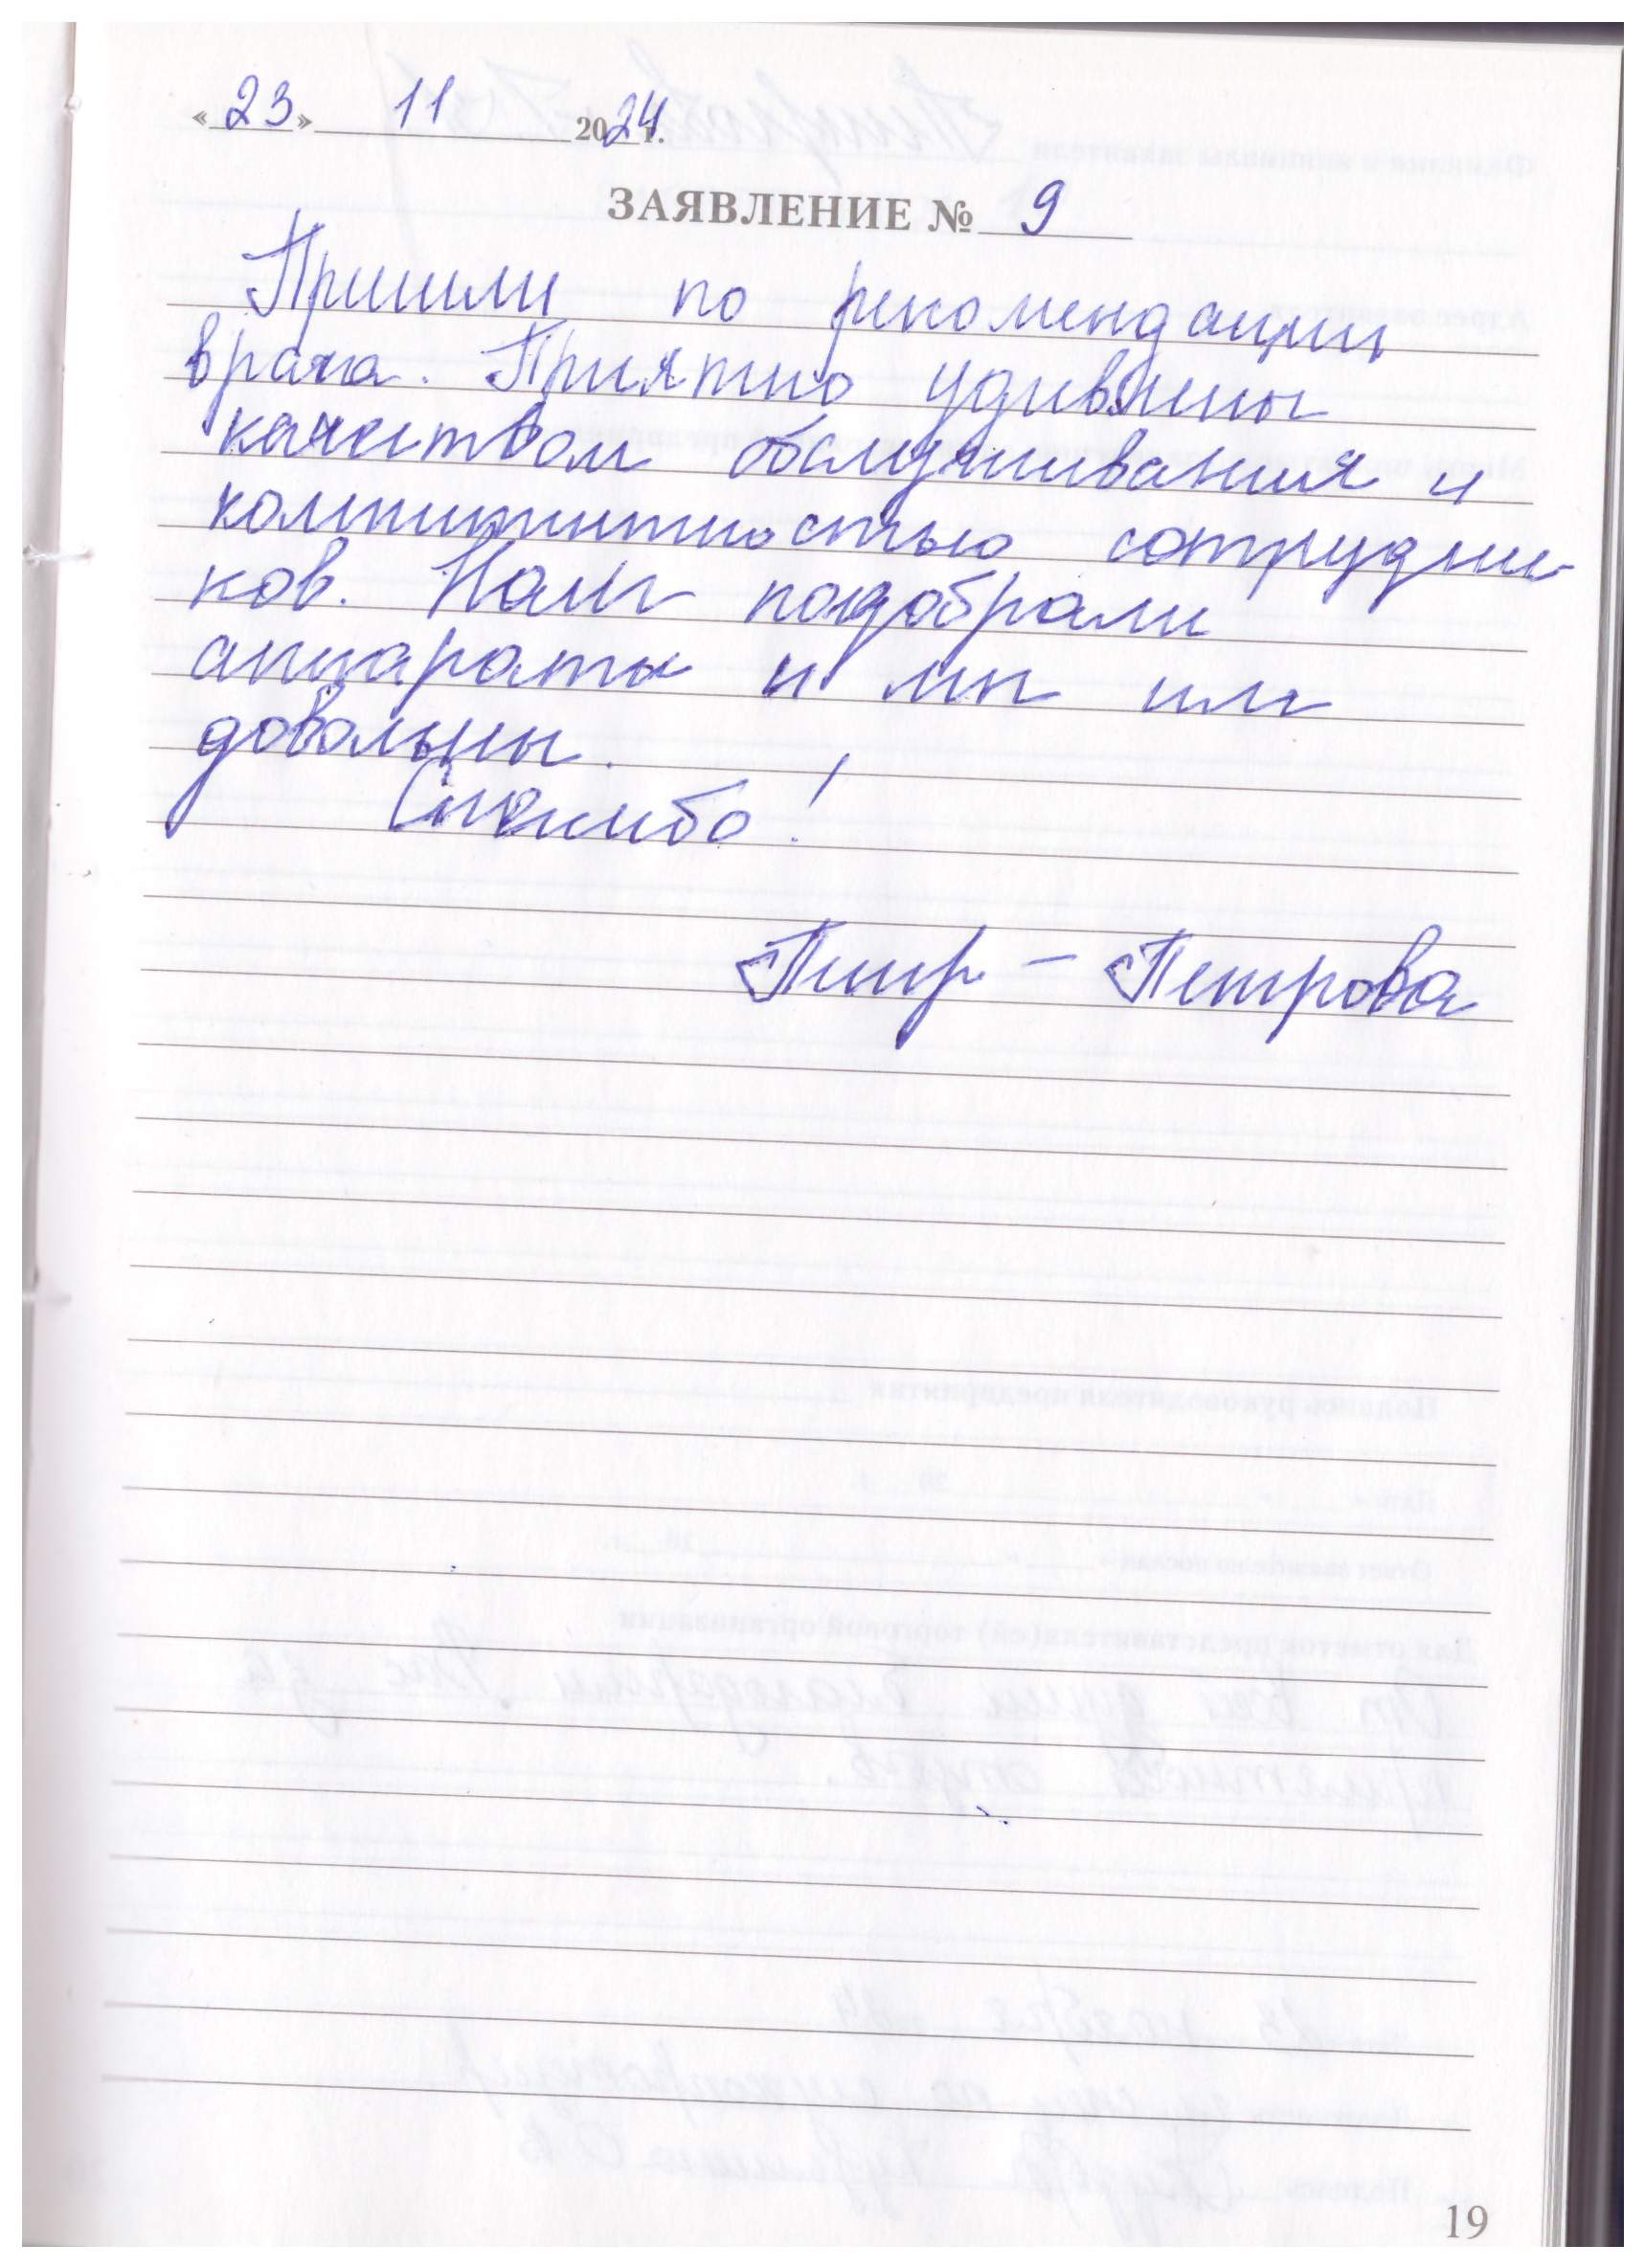 «23» 11 2024 г.
ЗАЯВЛЕНИЕ № 9
Пришли по рекомендации
врача. Приятно удивлены
качеством обслуживания и
компитентностью сотрудни
ков. Нам подобрали
аппараты и мы им
довольны.
Спасибо!
Петр – Петрова
19